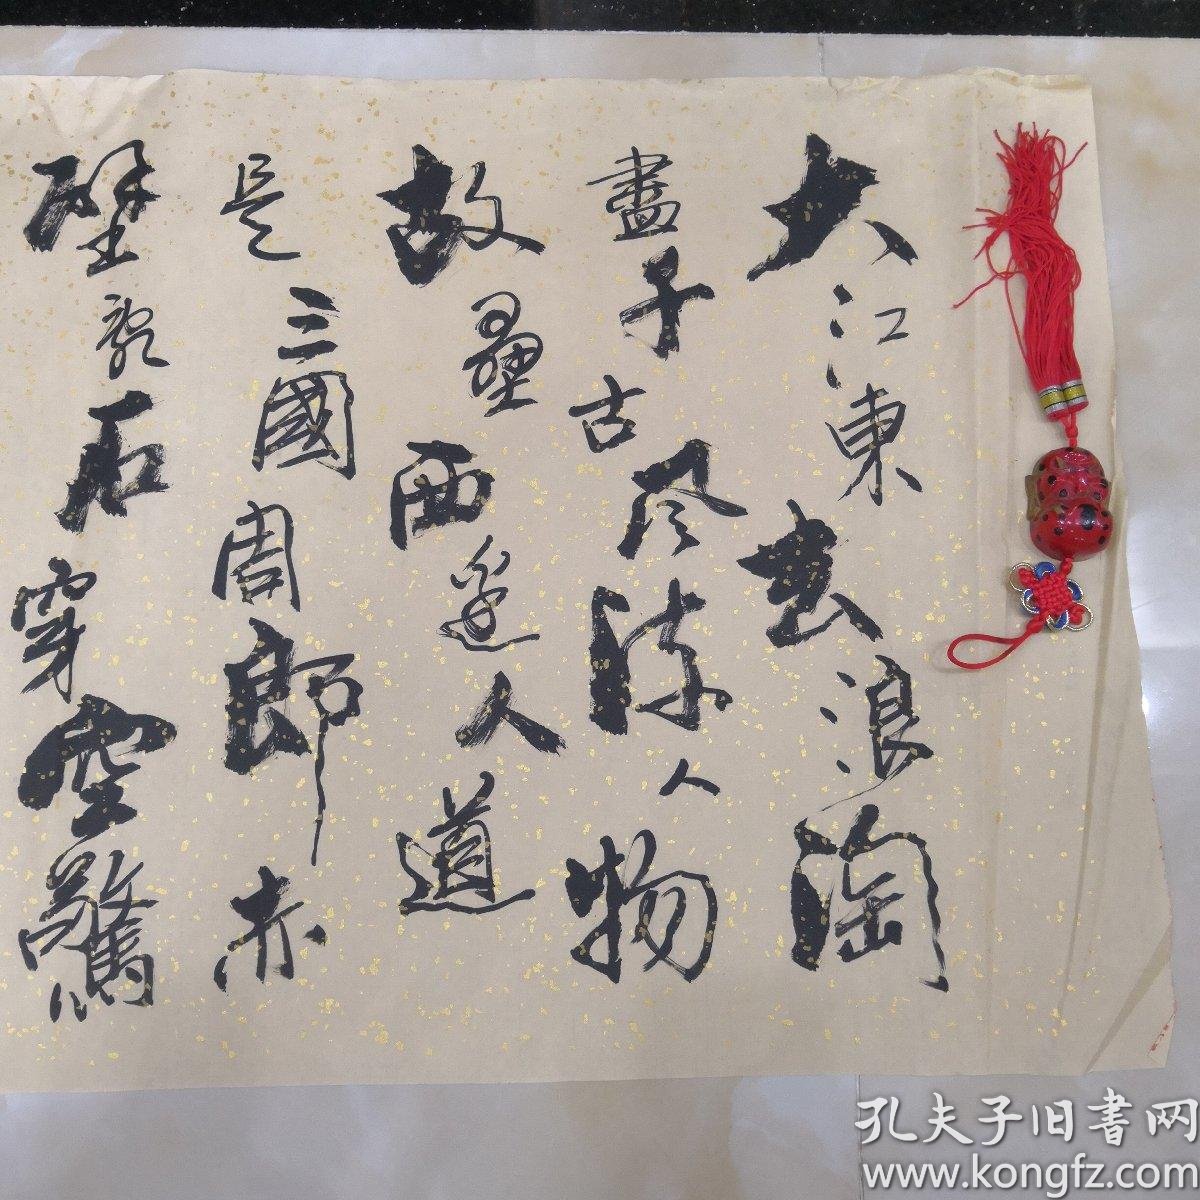 大江東去浪淘
盡千古风流人物
故壘西邊人道
是三國周郎赤
壁亂石穿空驚
孔夫子旧書网
www.kongfz.com